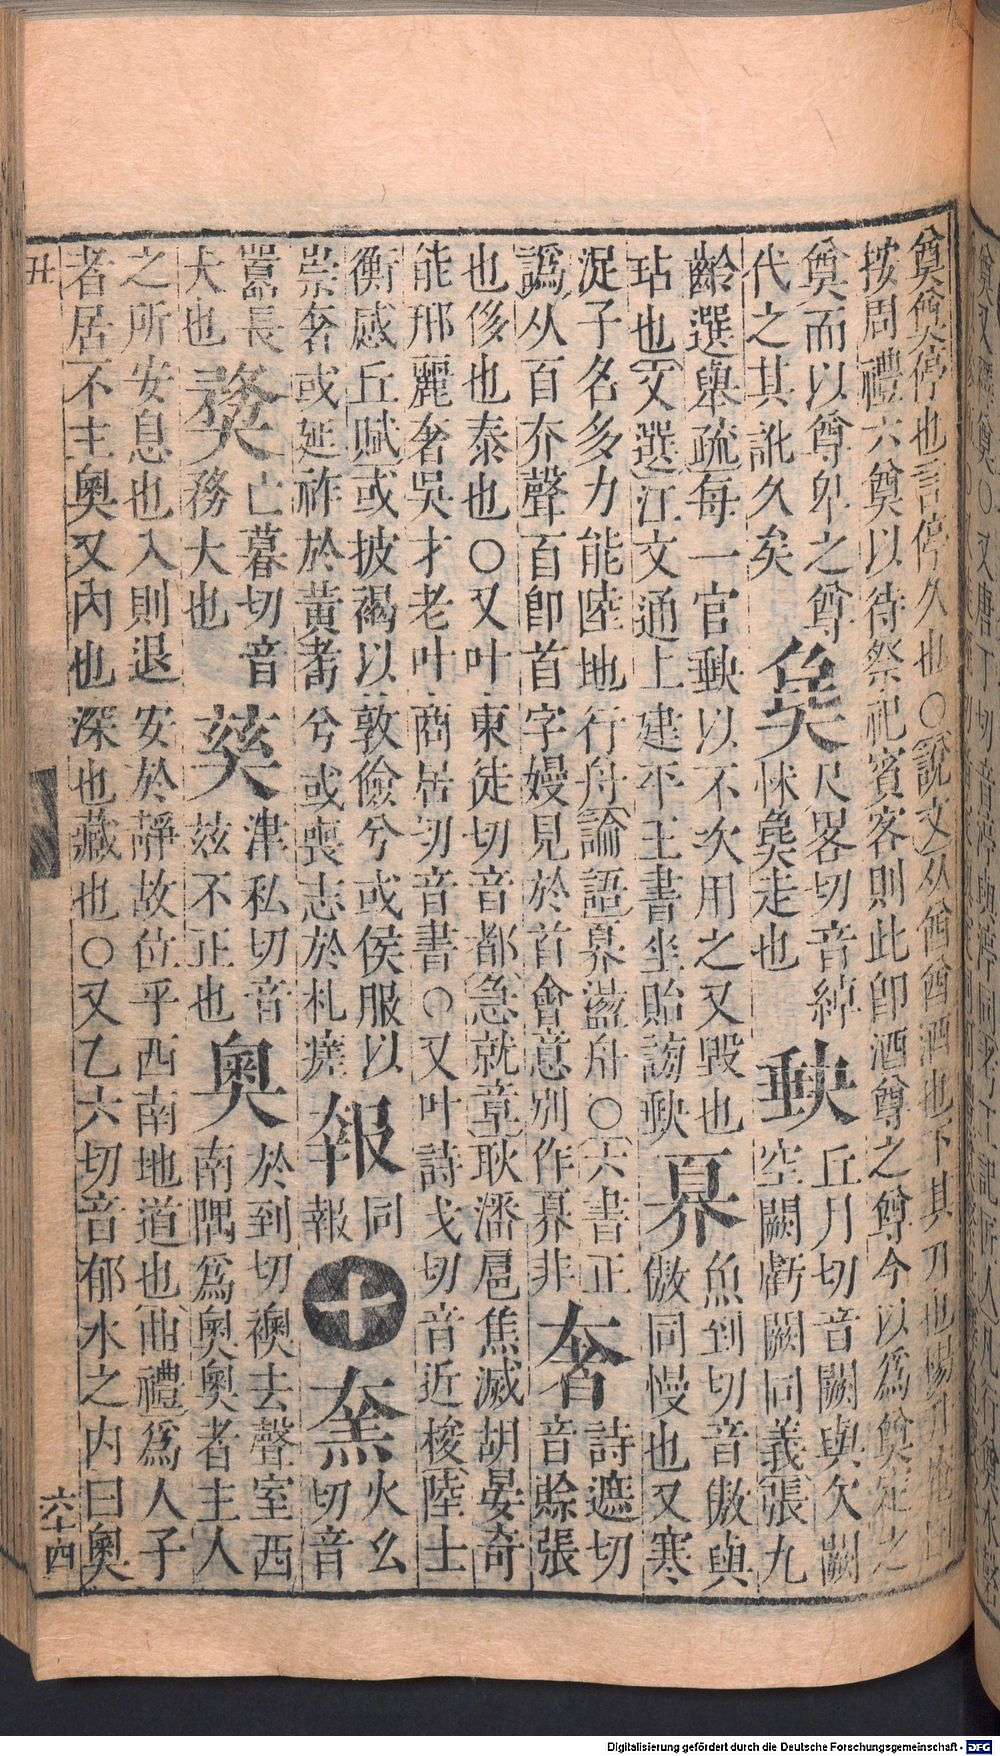 奠奠停也言停久也○說文从酋酋酒也下其丌也楊升菴曰
按周禮六奠以待祭祀賓客則此卽酒尊之尊今以爲奠定之
奠而以尊卑之尊
代之其訛久矣
㲋
尺畧切音綽
怵㲋走也
䦼
丘月切音闕與欠闕
空闕虧闕同義張九
齡選舉疏每一官䦼以不次用之又毀也
玷也文選江文通上建平王書坐貽謗䦼
奡
魚到切音傲與
傲同慢也又寒
浞子名多力能陸地行舟論語奡盪舟○六書正
譌从百夰聲百卽首字嫚見於首會意別作奡非
奢
詩遮切
音賖張
也侈也泰也○又叶東徒切音都急就章耿潘扈焦滅胡晏奇
能邢麗奢吳才老叶商居切音書○又叶詩戈切音近梭陸士
衡感丘賦或披褐以敦儉兮或侯服以
崇奢或延祚於黃耉兮或喪志於札瘥
𡙈
同
報
十
𡙡
火么
切音
嚻長
大也
䂇
亡暮切音
務大也
𡙛
津私切音
玆不正也
奥
於到切襖去聲室西
南隅爲奧奧者主人
之所安息也入則退安於靜故位乎西南地道也曲禮爲人子
者居不主奧又內也深也藏也○又乙六切音郁水之內曰奧
丑
六十四
Digitalisierung gefördert durch die Deutsche Forschungsgemeinschaft - DFG